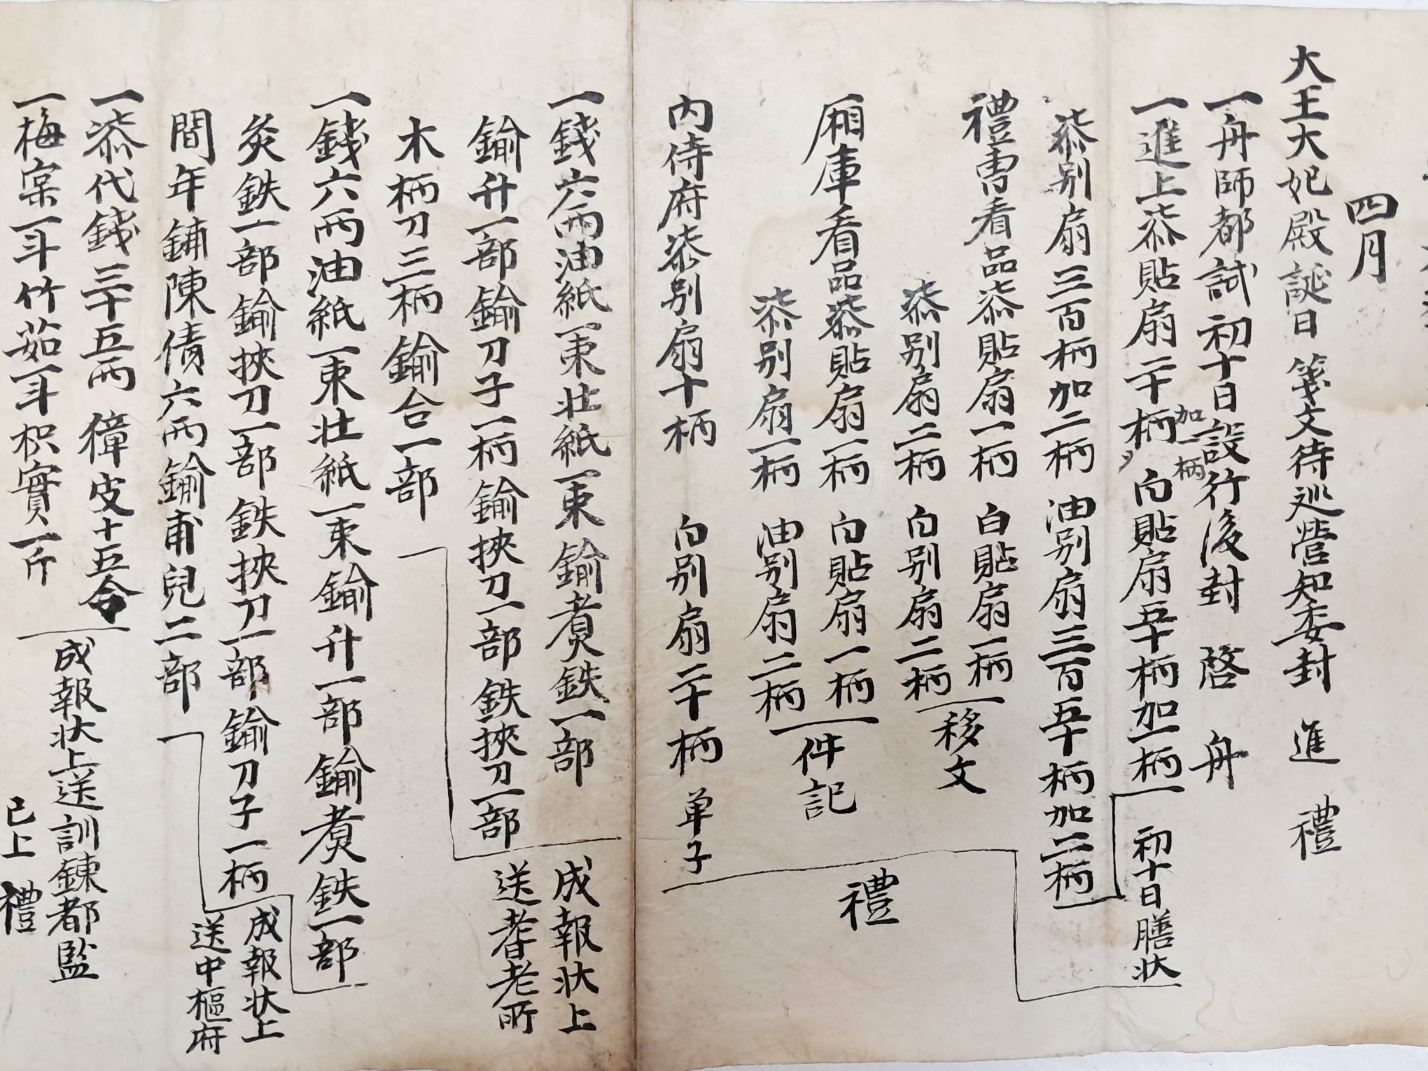 四月
大王大妃殿誕日 箋文待巡營知委封 進 禮
一舟師都試初十日設行後封 啓 舟
一進上柒貼扇二十柄加一柄 白貼扇五十柄加一柄 初十日膳状
柒別扇三百柄加二柄 油別扇三百五十柄加二柄
禮曹看品柒貼扇一柄 白貼扇一柄 移文
柒別扇二柄 白別扇二柄
厢庫看品柒貼扇一柄 白貼扇一柄 件記
柒別扇一柄 油別扇二柄
禮
內侍府柒別扇十柄 白別扇二十柄 单子
一錢六兩油紙一束壯紙一束鍮煑鉄一部 成報状上
鍮升一部鍮刀子一柄鍮挾刀一部鉄挾刀一部 送耆老所
木柄刀三柄鍮合一部
一錢六兩油紙一束壯紙一束鍮升一部鍮煑鉄一部
灸鉄一部鍮挾刀一部鉄挾刀一部鍮刀子一柄 成報状上
間年鋪陳債六兩鍮甫兒二部 送中樞府
一柒代錢三十五兩 獐皮十五令
成報状上送訓鍊都監
一梅宲一斗竹茹一斗枳實一斤 已上 禮